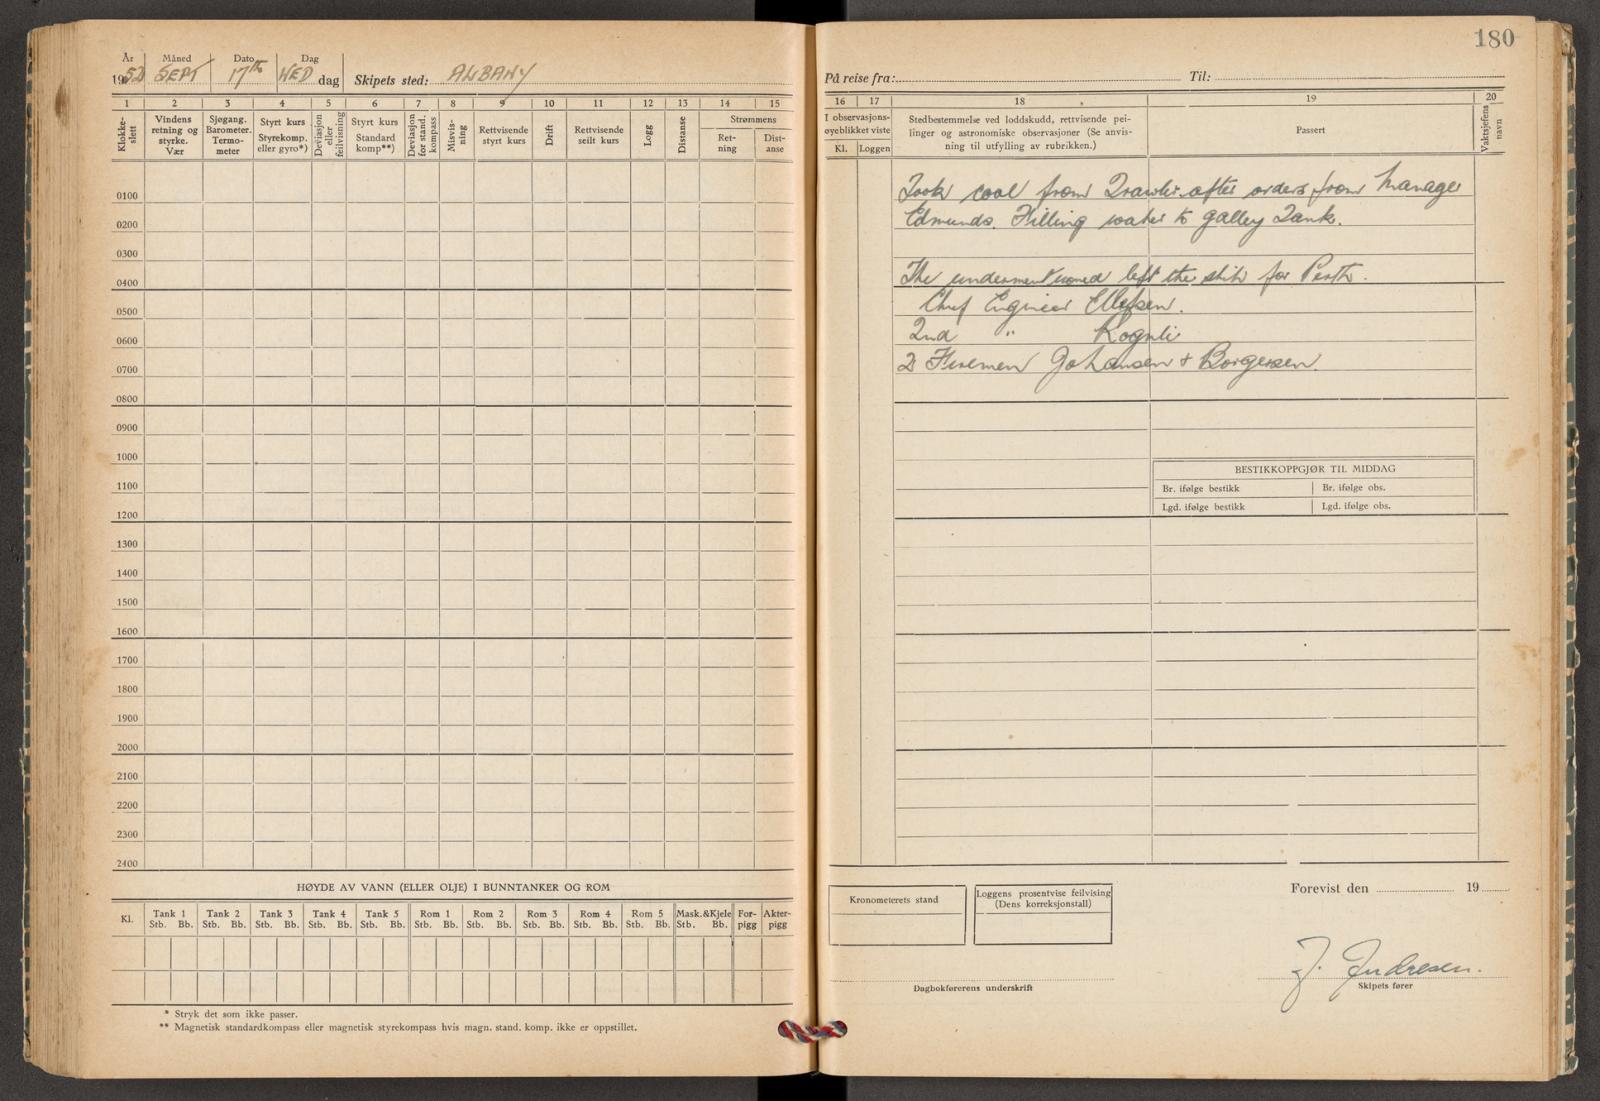 180
År Måned Dato Dag
1952 SEPT 17th WED dag Skipets sted: ALBANY
På reise fra: Til:
1 2 3 4 5 6 7 8 9 10 11 12 13 14 15
Klokkeslett
Vindens retning og styrke. Vær
Sjøgang. Barometer. Termometer
Styrt kurs Styrekomp. eller gyro*)
Deviasjon eller feilvisning
Styrt kurs Standard komp**)
Deviasjon for stand. kompass
Misvisning
Rettvisende styrt kurs
Drift
Rettvisende seilt kurs
Logg
Distanse
Strømmens
Retning
Distanse
0100
0200
0300
0400
0500
0600
0700
0800
0900
1000
1100
1200
1300
1400
1500
1600
1700
1800
1900
2000
2100
2200
2300
2400
HØYDE AV VANN (ELLER OLJE) I BUNNTANKER OG ROM
Kl. Tank 1 Tank 2 Tank 3 Tank 4 Tank 5 Rom 1 Rom 2 Rom 3 Rom 4 Rom 5 Mask.&Kjele For-pigg Akter-pigg
Stb. Bb. Stb. Bb. Stb. Bb. Stb. Bb. Stb. Bb. Stb. Bb. Stb. Bb. Stb. Bb. Stb. Bb. Stb. Bb. Stb. Bb.
* Stryk det som ikke passer.
** Magnetisk standardkompass eller magnetisk styrekompass hvis magn. stand. komp. ikke er oppstillet.
16 17 18 19 20
I observasjons-
øyeblikket viste
Kl. Loggen
Stedbestemmelse ved loddskudd, rettvisende pei-
linger og astronomiske observasjoner (Se anvis-
ning til utfylling av rubrikken.)
Passert
Vaktsjefens navn
Took coal from Trawler after orders from Manager
Edmunds. Filling water to galley Tank.
The undermentioned left the ship for Perth.
Chief Engineer Ellefsen.
2nd " Rognli
2 Firemen Johansen + Borgersen.
BESTIKKOPPGJØR TIL MIDDAG
Br. ifølge bestikk Br. ifølge obs.
Lgd. ifølge bestikk Lgd. ifølge obs.
Kronometerets stand
Loggens prosentvise feilvising
(Dens korreksjonstall)
Forevist den 19
Dagbokførerens underskrift
J. Andresen.
Skipets fører